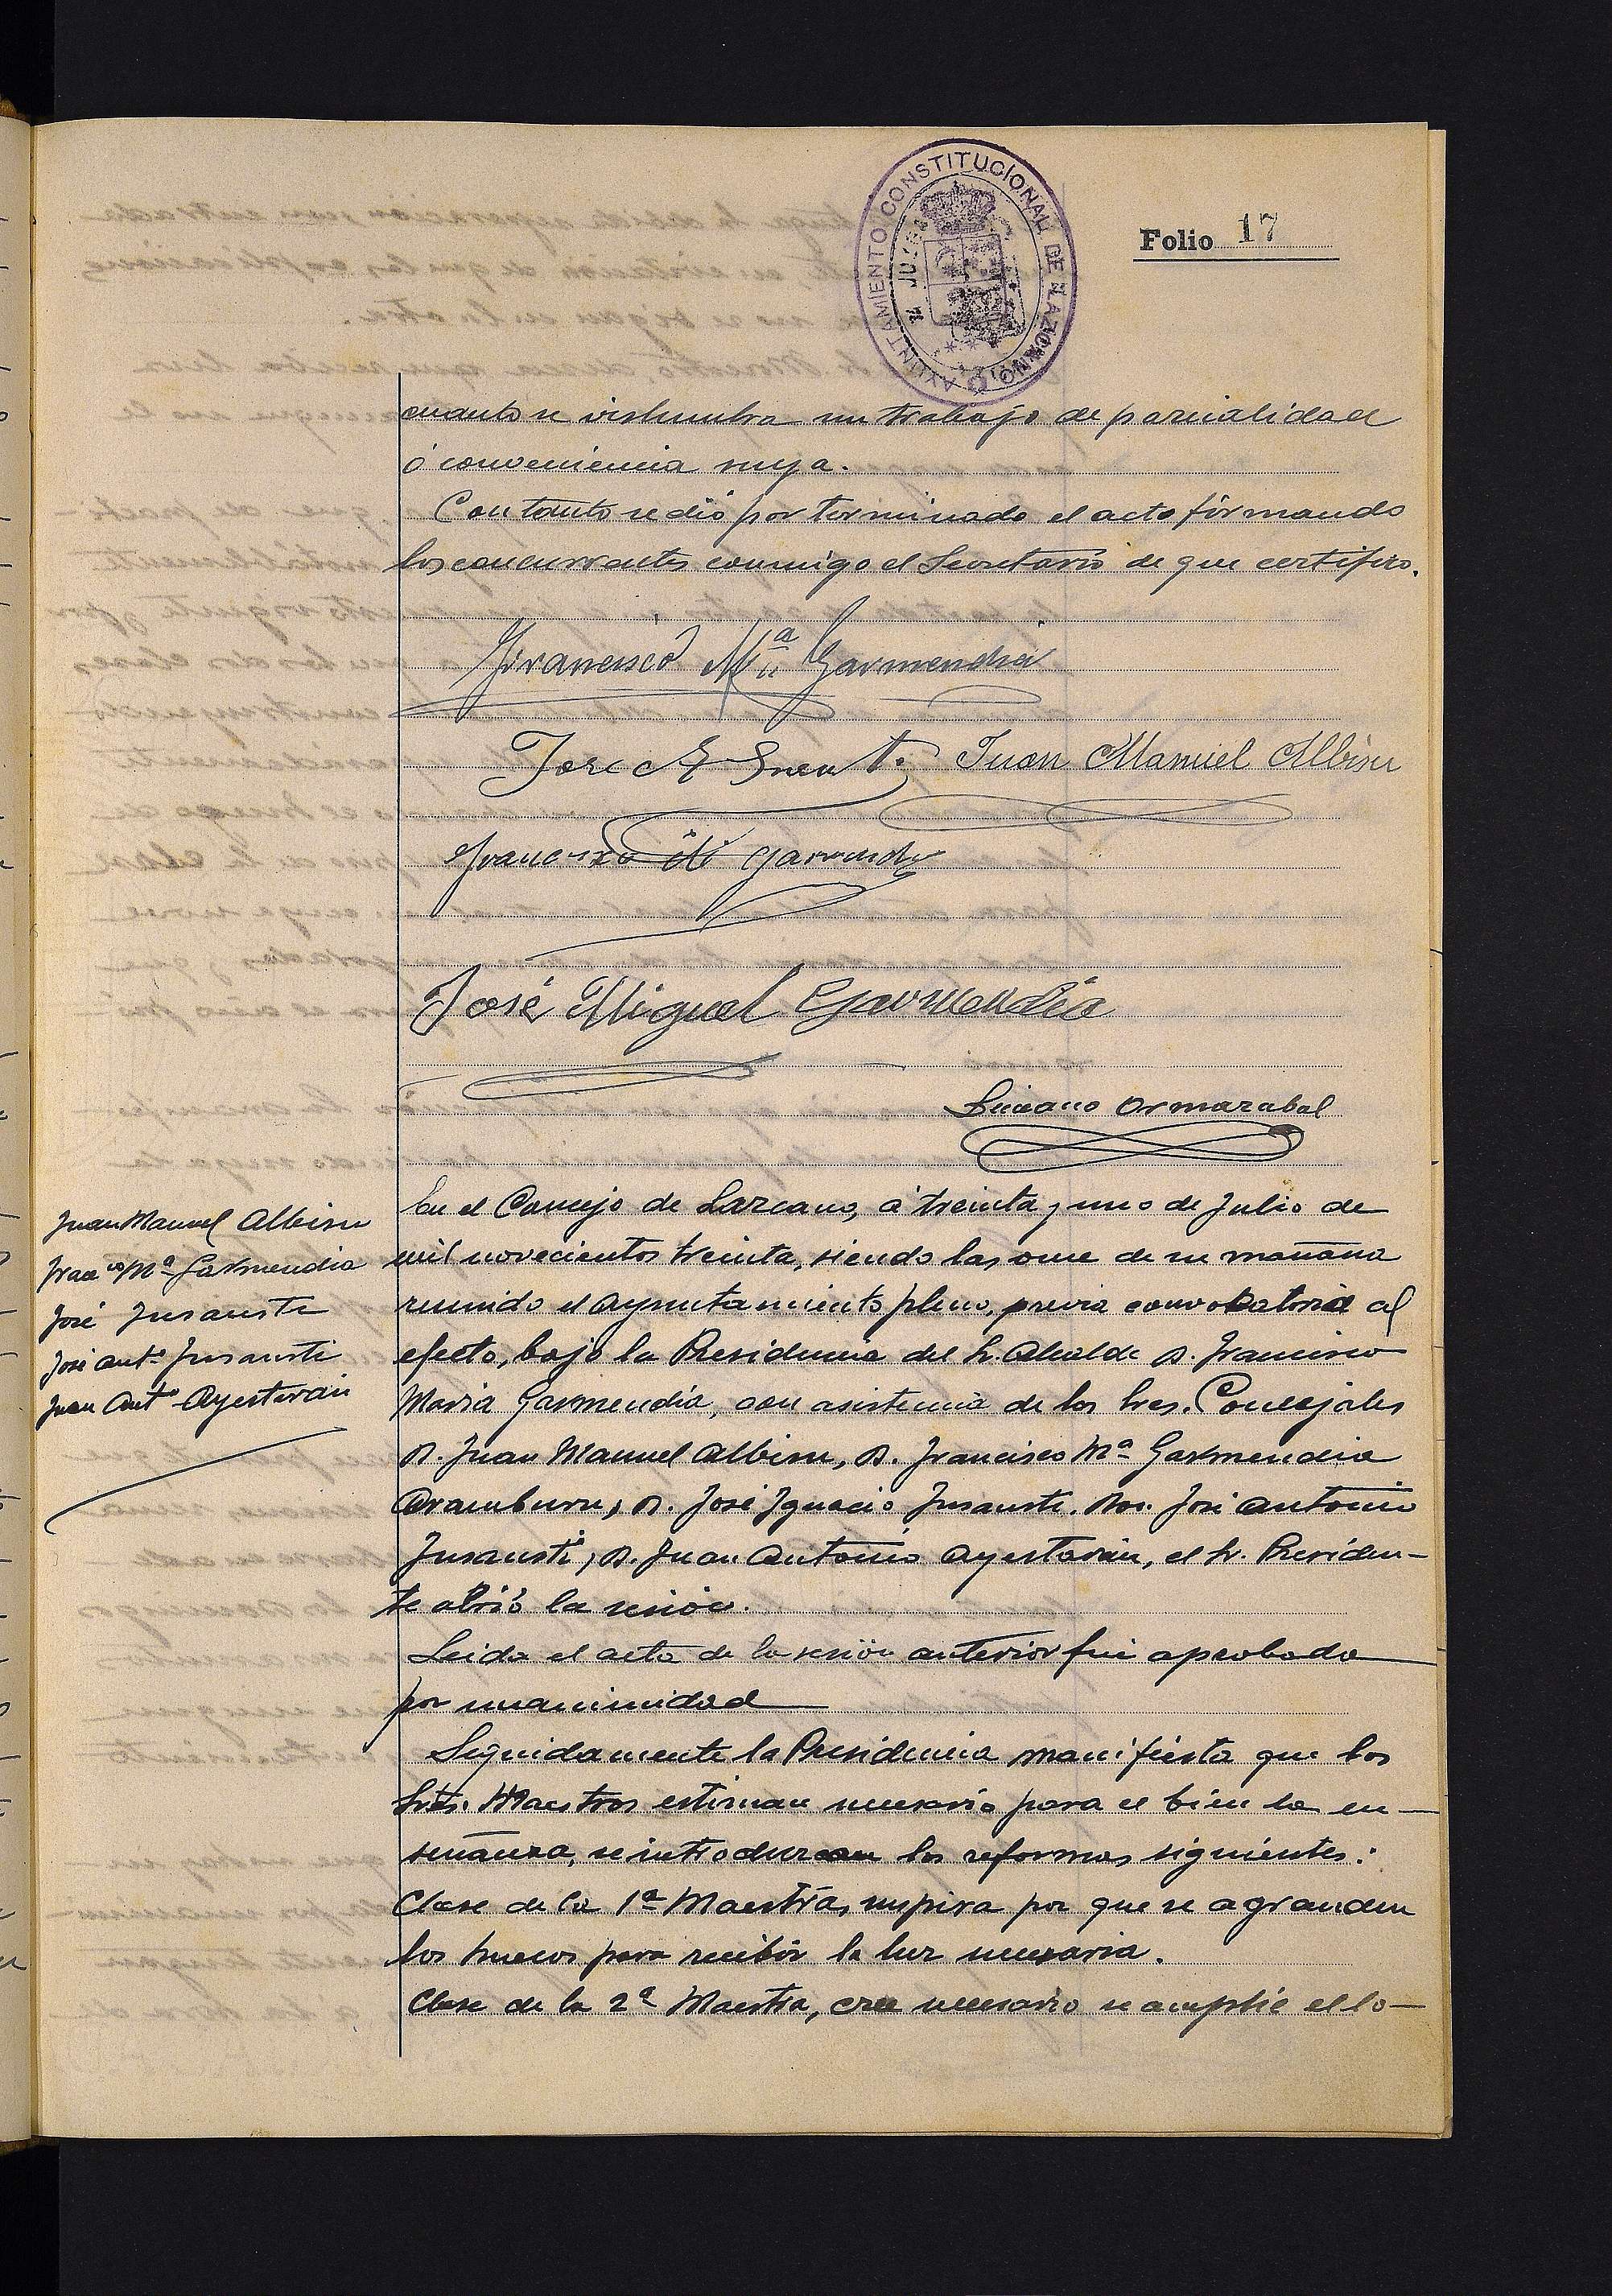 AYUNTAMIENTO CONSTITUCIONAL DE LAZCANO
Folio 17
cuanto se vislumbra un trabajo de parcialidad
ó conveniencia suya.
Con tanto se dió por terminado el acto firmando
los concurrentes conmigo el Secretario de que certifico.
Francisco Mª Garmendia
José
Juan Manuel Albisu
Francisco Mª Garmendia
José Miguel Garmendia
Luciano Ormazabal
Juan Manuel Albisu
Francᶜᵒ Mª Garmendia
José Insausti
José Antº Insausti
Juan Antº Ayestarán
En el Concejo de Lazcano, á treinta y uno de Julio de
mil novecientos treinta, siendo las once de su mañana
reunido el Ayuntamiento pleno, previa convokatoria al
efecto, bajo la Presidencia del Sr. Alcalde D. Francisco
Maria Garmendia, con asistencia de los Sres. Concejales
D. Juan Manuel Albisu, D. Francisco Mª Garmendia
Aramburu, D. José Ignacio Insausti. Don José Antonio
Insausti, D. Juan Antonio Ayestarán, el Sr. Presiden-
te abrió la sesión.
Leida el acta de la sesión anterior fué aprobada
por unanimidad
Seguidamente la Presidencia manifiesta que los
Sres. Maestros estiman necesario para el bien la en-
señanza, se introduzcan las reformas siguientes:
Clase de la 1ª Maestra, suspira por que se agranden
los huecos para recibir la luz necesaria.
Clase de la 2ª Maestra, cree necesario se amplie el lo-